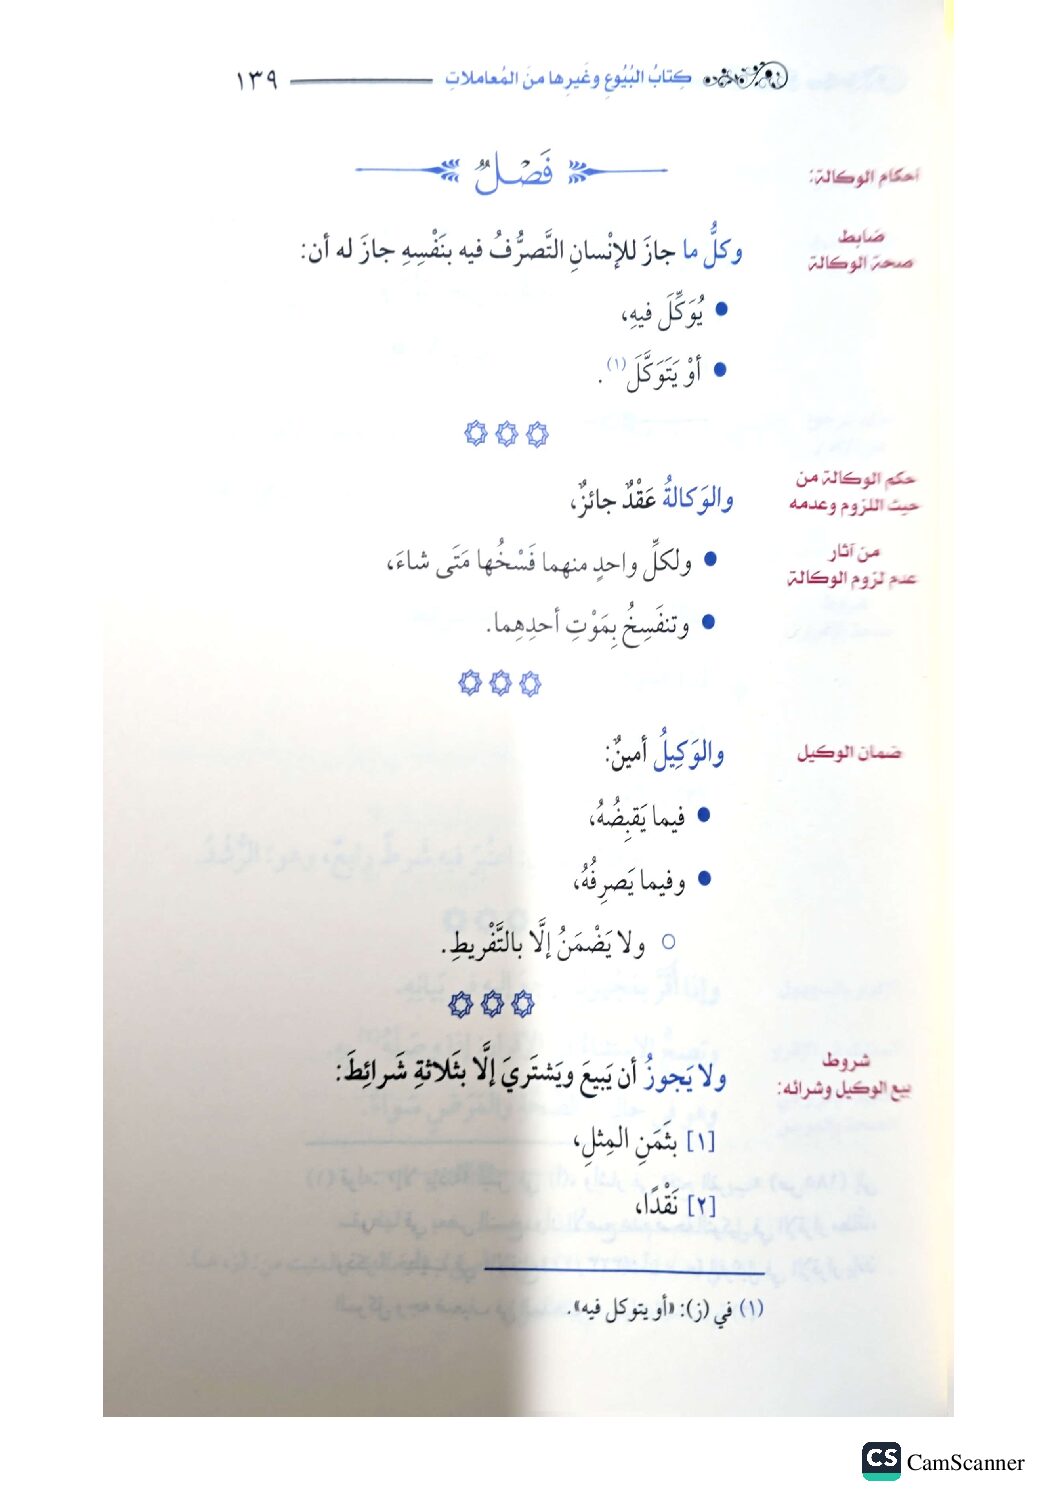 كِتابُ البُيُوعِ وغَيرِها منَ المُعاملاتِ ١٣٩
فَصْلٌ
أحكام الوكالة:
ضابط
صحة الوكالة
وكلُّ ما جازَ للإنْسانِ التَّصرُّفُ فيه بنَفْسِهِ جازَ له أن:
• يُوَكِّلَ فيهِ،
• أوْ يَتَوَكَّلَ(١).
حكم الوكالة من
حيث اللزوم وعدمه
والوَكالةُ عَقْدٌ جائزٌ،
من آثار
عدم لزوم الوكالة
• ولكلِّ واحدٍ منهما فَسْخُها مَتَى شاءَ،
• وتنفَسِخُ بِمَوْتِ أحدِهِما.
ضمان الوكيل
والوَكِيلُ أمينٌ:
• فيما يَقبِضُهُ،
• وفيما يَصرِفُهُ،
○ ولا يَضْمَنُ إلَّا بالتَّفْريطِ.
شروط
بيع الوكيل وشرائه:
ولا يَجوزُ أن يَبيعَ ويَشتَريَ إلَّا بثَلاثةِ شَرائِطَ:
[١] بثَمَنِ المِثلِ،
[٢] نَقْدًا،
(١) في (ز): «أو يتوكل فيه».
CS CamScanner